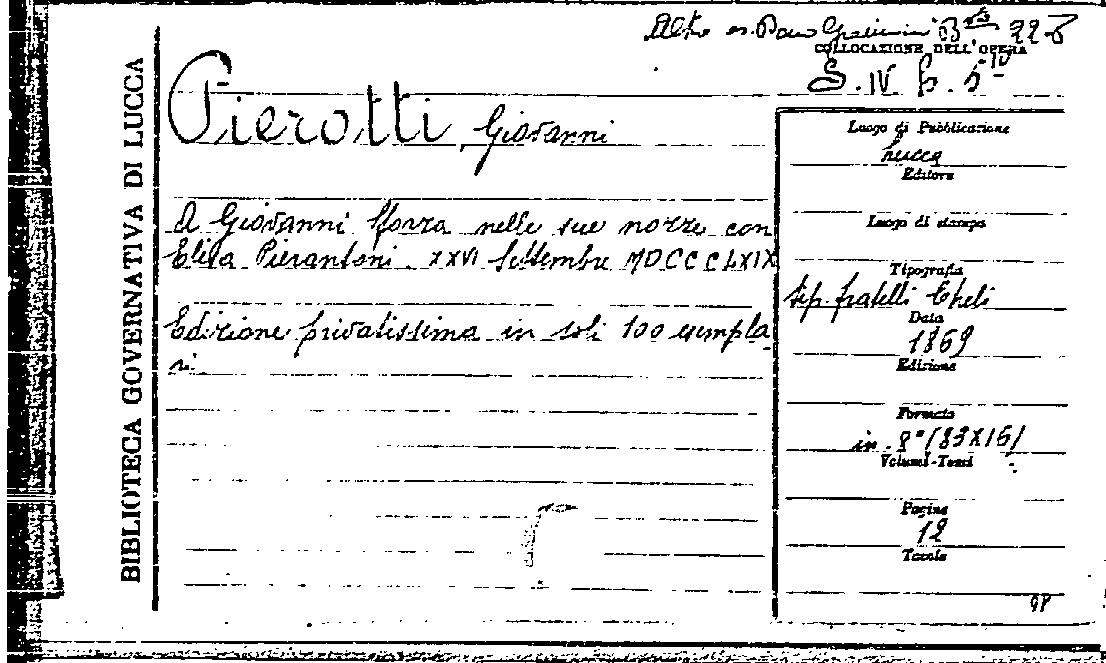 Altro es. Dono B.ta 22
COLLOCAZIONE DELL'OPERA
S. IV b. 5
BIBLIOTECA GOVERNATIVA DI LUCCA
Pierotti, Giovanni
A Giovanni Sforza nelle sue nozze con
Elisa Pierantoni XXVI Settembre MDCCCLXIX
Edizione privatissima in soli 100 esempla-
ri.
Luogo di Pubblicazione
Lucca
Editore
Luogo di stampa
Tipografia
tip. fratelli Cheli
Data
1869
Edizione
Formato
in 8°
Volumi-Tomi
Pagine
12
Tavole